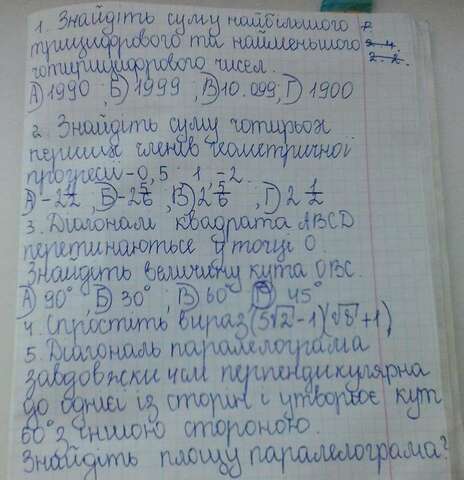 1. Знайдіть суму найбільшого
трицифрового та найменшого
чотирицифрового чисел.
А) 1990 ; Б) 1999 ; В) 10.099, Г) 1900
2. Знайдіть суму чотирьох
перших членів геометричної
прогресії -0,5 ; 1 ; -2...
А) -2 1/2 ; Б) -2 5/6 ; В) 2 5/6 ; Г) 2 1/2
3. Діагоналі квадрата ABCD
перетинаються у точці О.
Знайдіть величину кута ОВС.
А) 90° ; Б) 30° ; В) 60° Г) 45°
4. Спростіть вираз (5√2 - 1)(√8 + 1)
5. Діагональ паралелограма
завдовжки чсм перпендикулярна
до однієї із сторін і утворює кут
60° з іншою стороною.
Знайдіть площу паралелограма?